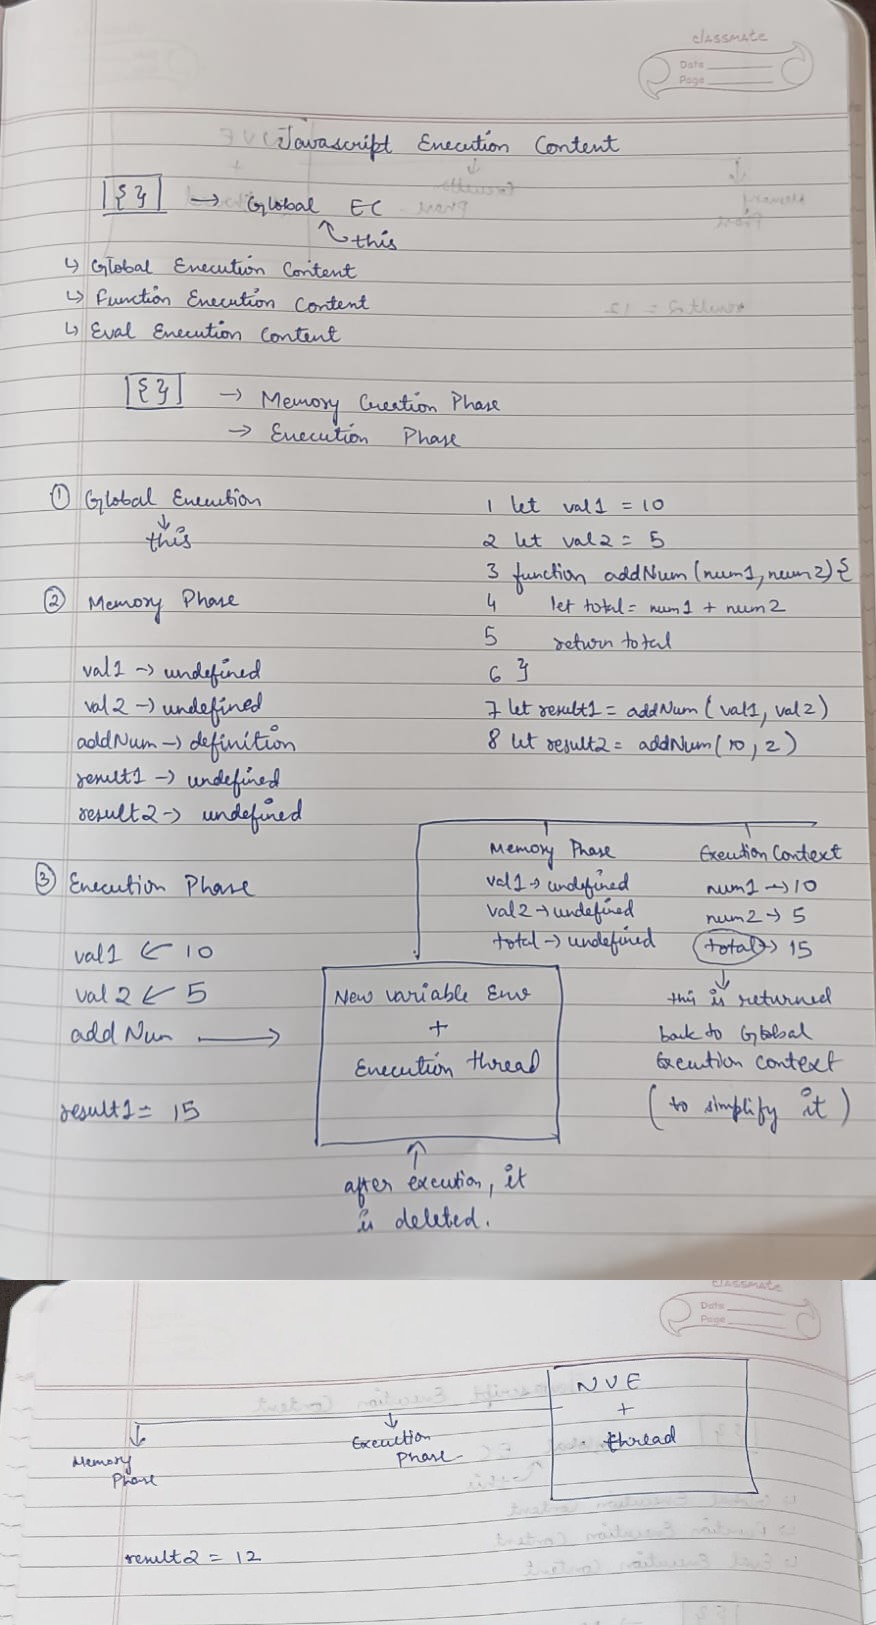 classmate
Date
Page
Javascript Execution Content
{ } → Global EC
this
↳ Global Execution Content
↳ Function Execution Content
↳ Eval Execution Content
{ } → Memory Creation Phase
→ Execution Phase
① Global Execution
↓
this
② Memory Phase
val1 → undefined
val2 → undefined
addNum → definition
result1 → undefined
result2 → undefined
1 let val1 = 10
2 let val2 = 5
3 function addNum(num1, num2){
4 let total = num1 + num2
5 return total
6 }
7 let result1 = addNum(val1, val2)
8 let result2 = addNum(10, 2)
③ Execution Phase
val1 ← 10
val2 ← 5
addNum →
result1 = 15
Memory Phase
val1 → undefined
val2 → undefined
total → undefined
Execution Context
num1 → 10
num2 → 5
total → 15
↓
this is returned
back to Global
Execution context
(to simplify it)
New variable Env
+
Execution thread
↑
after execution, it
is deleted.
classmate
Date
Page
NVE
+
thread
Execution
Phase
Memory
Phase
result2 = 12